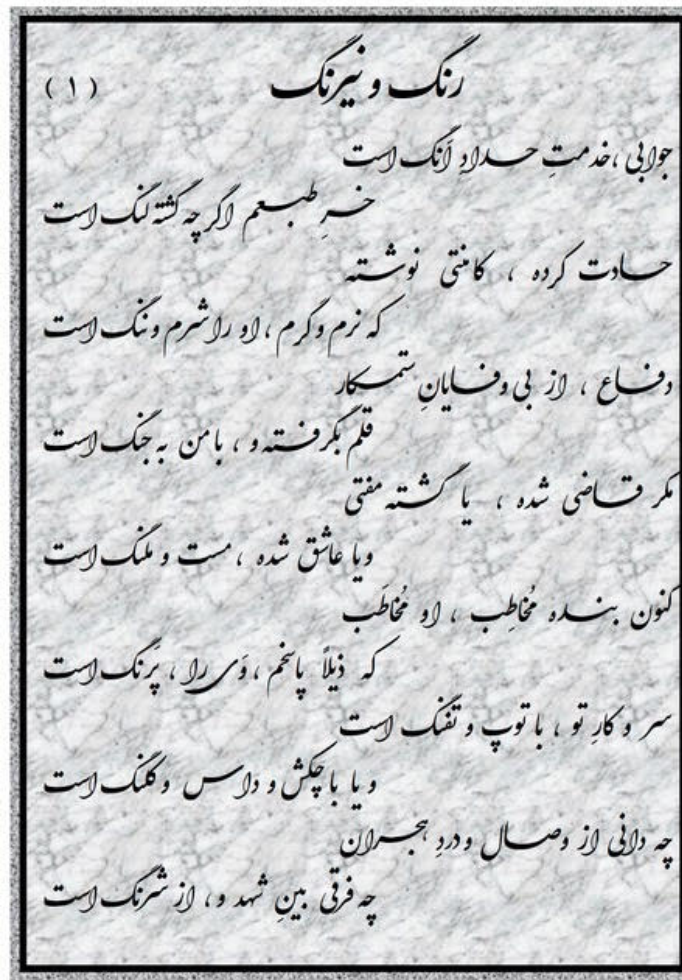 رنگ و نیرنگ
(۱)
جوابی ، خدمتِ حدادِ اَنگ است
خرِ طبعم اگر چه گشته لنگ است
حادت کرده ، کامنتی نوشته
که نرم و گرم ، او را شرم و ننگ است
دفاع ، از بی وفایانِ ستمکار
قلم بگرفته و ، با من به جنگ است
مگر قاضی شده ، یا گشته مفتی
و یا عاشق شده ، مست و ملنگ است
کنون بنده مُخاطِب ، او مُخاطَب
که ذیلاً پاسخم ، وَی را ، پَرنگ است
سر و کارِ تو ، با توپ و تفنگ است
و یا با چکش و داس و کلنگ است
چه دانی از وصال و دردِ هجران
چه فرقی بینِ شهد و ، از شرنگ است